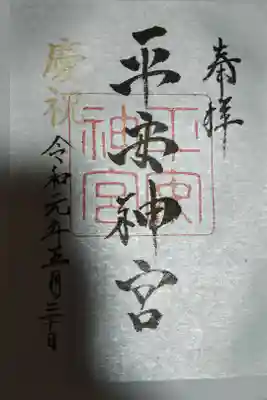 奉拝
平安神宮
平安神宮
慶祝
令和元年五月三十日